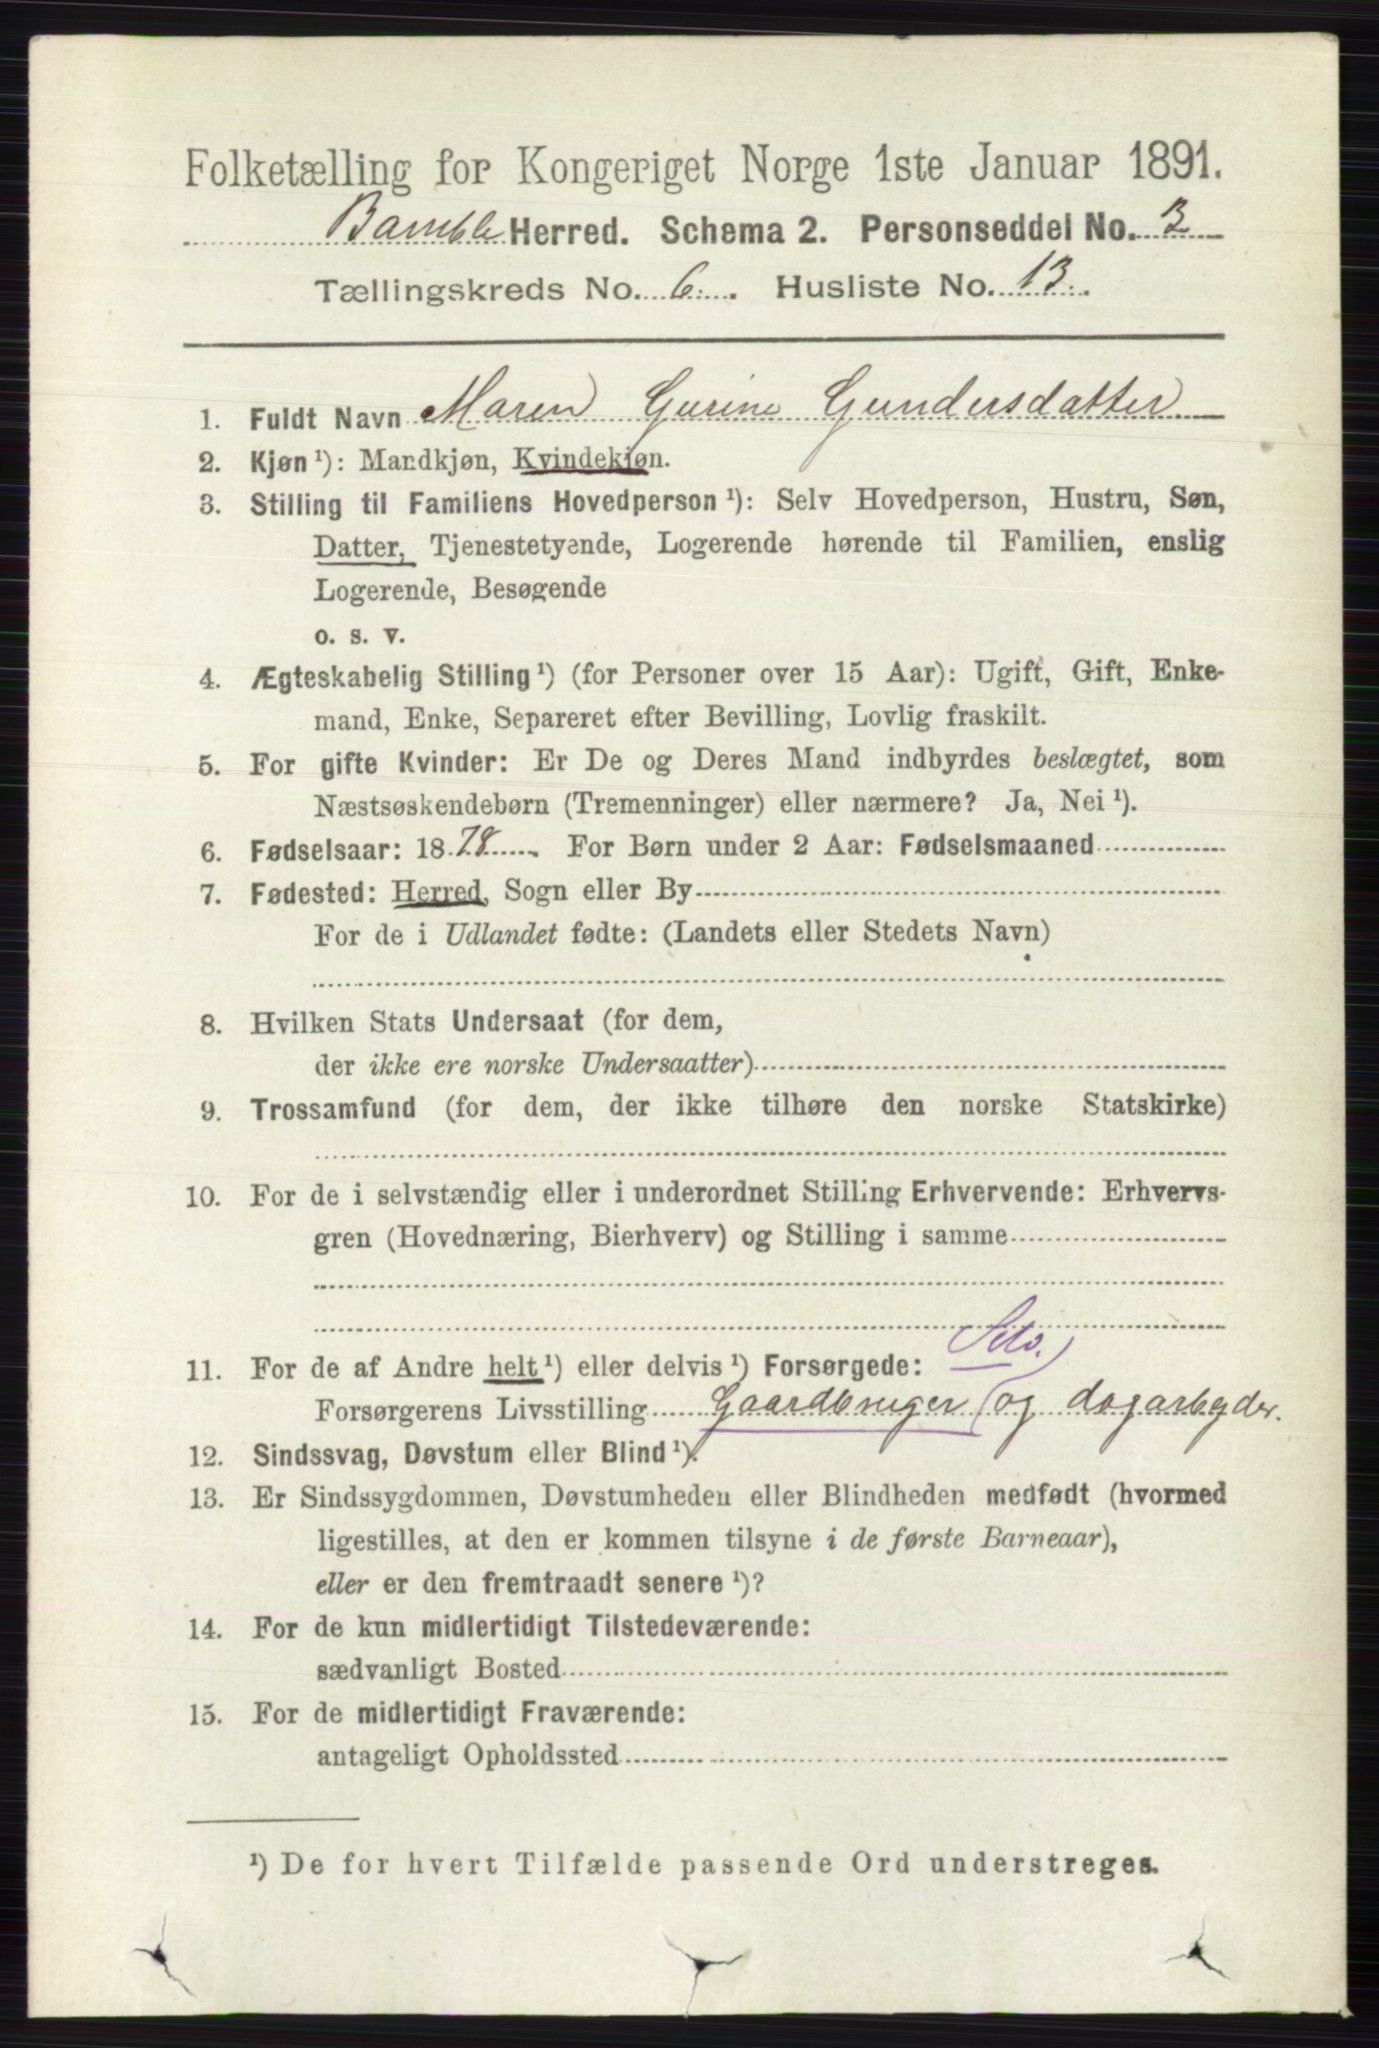 Folketælling for Kongeriget Norge 1ste Januar 1891.
Bamble Herred. Schema 2. Personseddel No. 3
Tællingskreds No. 6. Husliste No. 13.
1. Fuldt Navn Maren Gurine Gundersdatter
2. Kjøn ¹): Mandkjøn, Kvindekjøn.
3. Stilling til Familiens Hovedperson ¹): Selv Hovedperson, Hustru, Søn,
Datter, Tjenestetyende, Logerende hørende til Familien, enslig
Logerende, Besøgende
o. s. v.
4. Ægteskabelig Stilling ¹) (for Personer over 15 Aar): Ugift, Gift, Enke-
mand, Enke, Separeret efter Bevilling, Lovlig fraskilt.
5. For gifte Kvinder: Er De og Deres Mand indbyrdes beslægtet, som
Næstsøskendebørn (Tremenninger) eller nærmere? Ja, Nei ¹).
6. Fødselsaar: 1878. For Børn under 2 Aar: Fødselsmaaned
7. Fødested: Herred, Sogn eller By
For de i Udlandet fødte: (Landets eller Stedets Navn)
8. Hvilken Stats Undersaat (for dem,
der ikke ere norske Undersaatter)
9. Trossamfund (for dem, der ikke tilhøre den norske Statskirke)
10. For de i selvstændig eller i underordnet Stilling Erhvervende: Erhvervs-
gren (Hovednæring, Bierhverv) og Stilling i samme
Selv.
11. For de af Andre helt ¹) eller delvis ¹) Forsørgede:
Forsørgerens Livsstilling Gaardbruger (og dagarbeyder.
12. Sindssvag, Døvstum eller Blind ¹).
13. Er Sindssygdommen, Døvstumheden eller Blindheden medfødt (hvormed
ligestilles, at den er kommen tilsyne i de første Barneaar),
eller er den fremtraadt senere ¹)?
14. For de kun midlertidigt Tilstedeværende:
sædvanligt Bosted
15. For de midlertidigt Fraværende:
antageligt Opholdssted
¹) De for hvert Tilfælde passende Ord understreges.